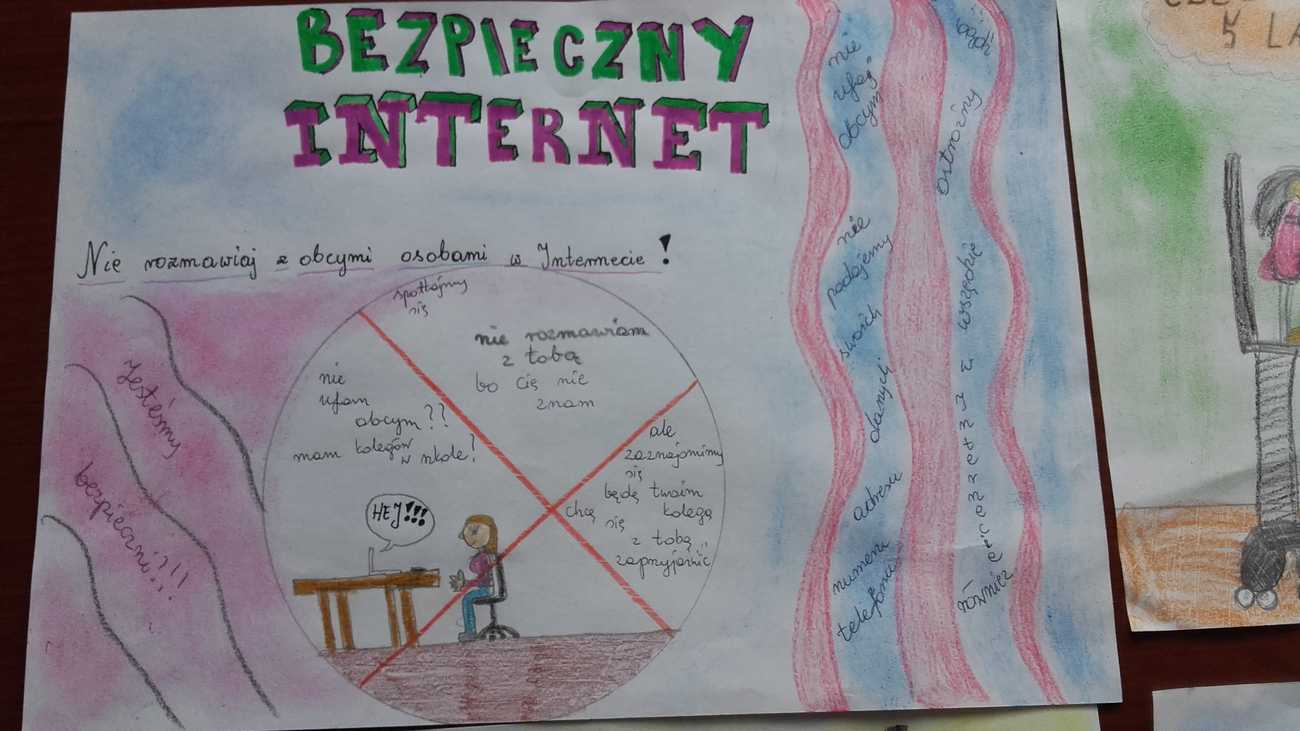 BEZPIECZNY
INTERNET
Nie rozmawiaj z obcymi osobami w Internecie!
spotkajmy
się
nie rozmawiam
z tobą
bo cię nie
znam
nie
ufam
obcym??
mam kolegów
w szkole!
ale
zaznajomimy
się
będę twoim
kolegą
chcę
się
z tobą
zaprzyjaźnić
HEJ!!!
Jesteśmy
bezpieczni?!!
nie
ufaj
obcym
nie
podajemy
swoich
danych
adresu
numeru
telefonu
bądź
ostrożny
wszędzie
również w internecie
5 LA